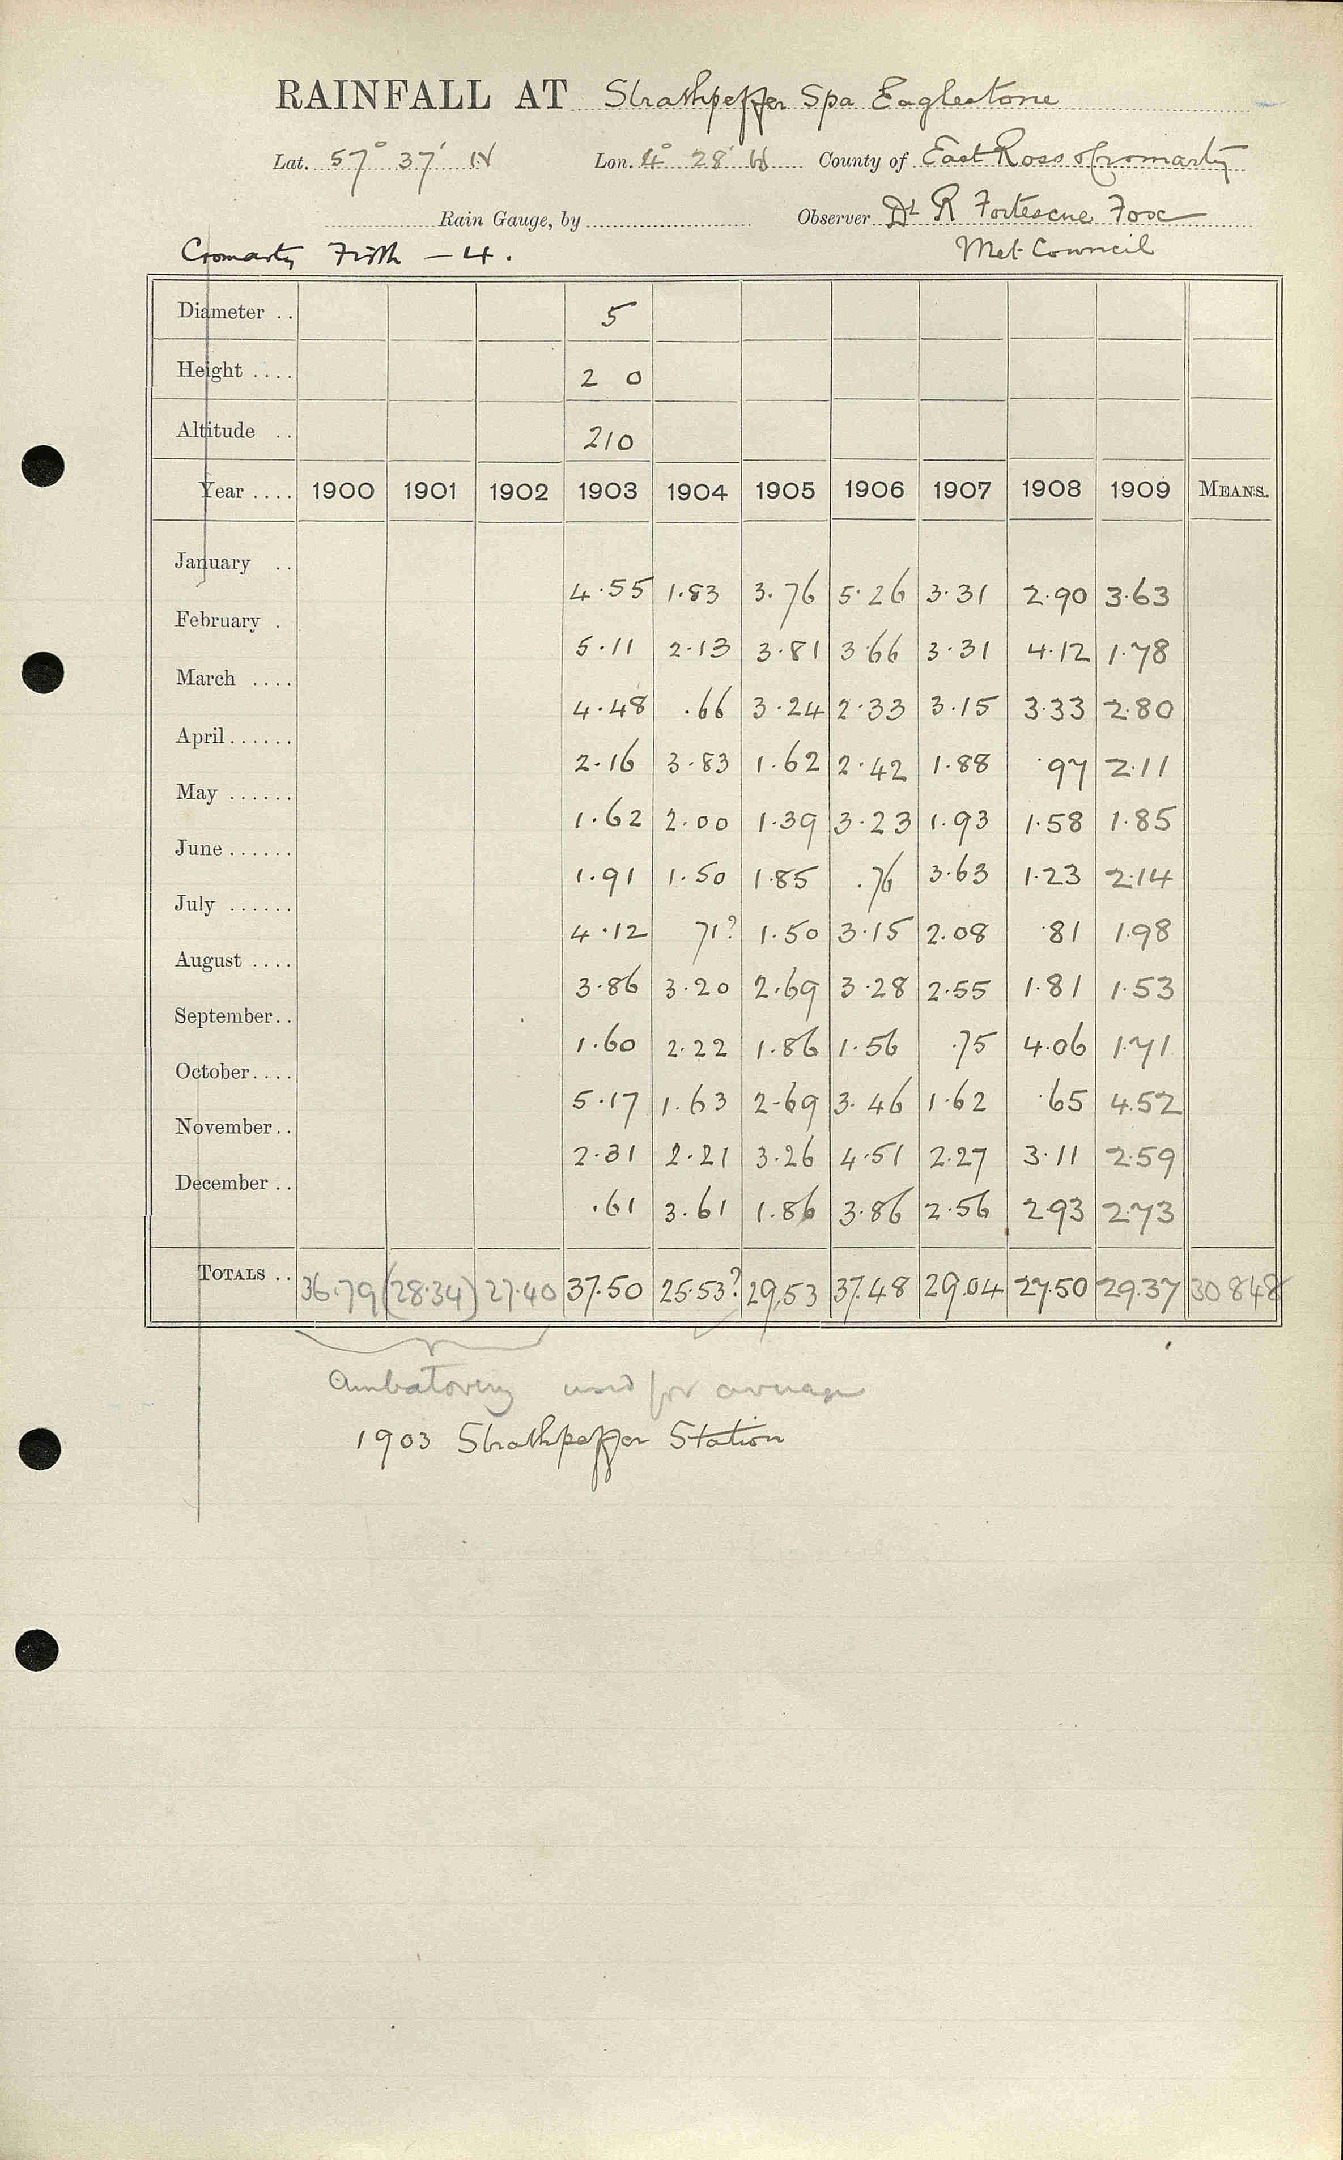 RAINFALL AT Strathpeffer Spa Eaglestone
Lat. 57° 37' N Lon. 4° 28' W County of East Ross & Cromarty
Rain Gauge, by Observer Dr R Fortescue Fox
Cromarty Firth — 4. Met. Council
Diameter .. 5
Height .... 2 0
Altitude .. 210
Year .... 1900 1901 1902 1903 1904 1905 1906 1907 1908 1909 MEANS.
January .. 4.55 1.83 3.76 5.26 3.31 2.90 3.63
February . 5.11 2.13 3.81 3.66 3.31 4.12 1.78
March .... 4.48 .66 3.24 2.33 3.15 3.33 2.80
April ...... 2.16 3.83 1.62 2.42 1.88 .97 2.11
May ...... 1.62 2.00 1.39 3.23 1.93 1.58 1.85
June ...... 1.91 1.50 1.85 .76 3.63 1.23 2.14
July ...... 4.12 71? 1.50 3.15 2.08 .81 1.98
August .... 3.86 3.20 2.69 3.28 2.55 1.81 1.53
September .. 1.60 2.22 1.86 1.56 .75 4.06 1.71
October .... 5.17 1.63 2.69 3.46 1.62 .65 4.52
November .. 2.31 2.21 3.26 4.51 2.27 3.11 2.59
December .. .61 3.61 1.86 3.86 2.56 2.93 2.73
TOTALS .. 36.79 (28.34) 27.40 37.50 25.53? 29.53 37.48 29.04 27.50 29.37 30.848
used for average
1903 Strathpeffer Station